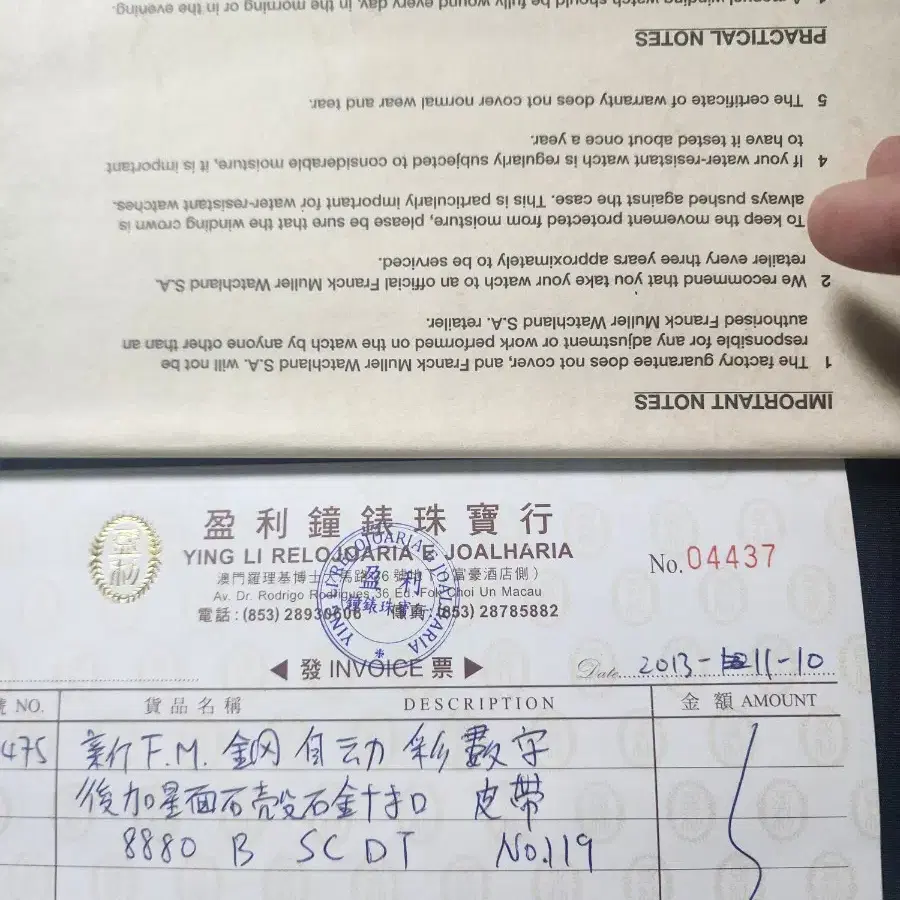 IMPORTANT NOTES
1 The factory guarantee does not cover, and Franck Muller Watchland S.A. will not be
responsible for any adjustment or work performed on the watch by anyone other than an
authorised Franck Muller Watchland S.A. retailer.
2 We recommend that you take your watch to an official Franck Muller Watchland S.A.
retailer every three years approximately to be serviced.
To keep the movement protected from moisture, please be sure that the winding crown is
always pushed against the case. This is particularly important for water-resistant watches.
4 If your water-resistant watch is regularly subjected to considerable moisture, it is important
to have it tested about once a year.
5 The certificate of warranty does not cover normal wear and tear.
PRACTICAL NOTES
1 A manual winding watch should be fully wound every day, in the morning or in the evening.
盈利鐘錶珠寶行
YING LI RELOJOARIA E JOALHARIA
No. 04437
澳門羅理基博士 馬路 6 號 (富豪酒店側)
Av. Dr. Rodrigo Rodrigues 36 Ed. Fok Choi Un Macau
電話:(853) 28930606 傳真:(853) 28785882
盈利
鐘錶珠寶
YING LI RELOJOARIA E JOALHARIA
◀ 發 INVOICE 票 ▶
Date 2013-11-10
號 NO. 貨品名稱 DESCRIPTION 金額 AMOUNT
475 新行 F.M. 鋼 自动 彩數字
後加星面石殼石針扣 皮帶
8880 B SC DT No.119